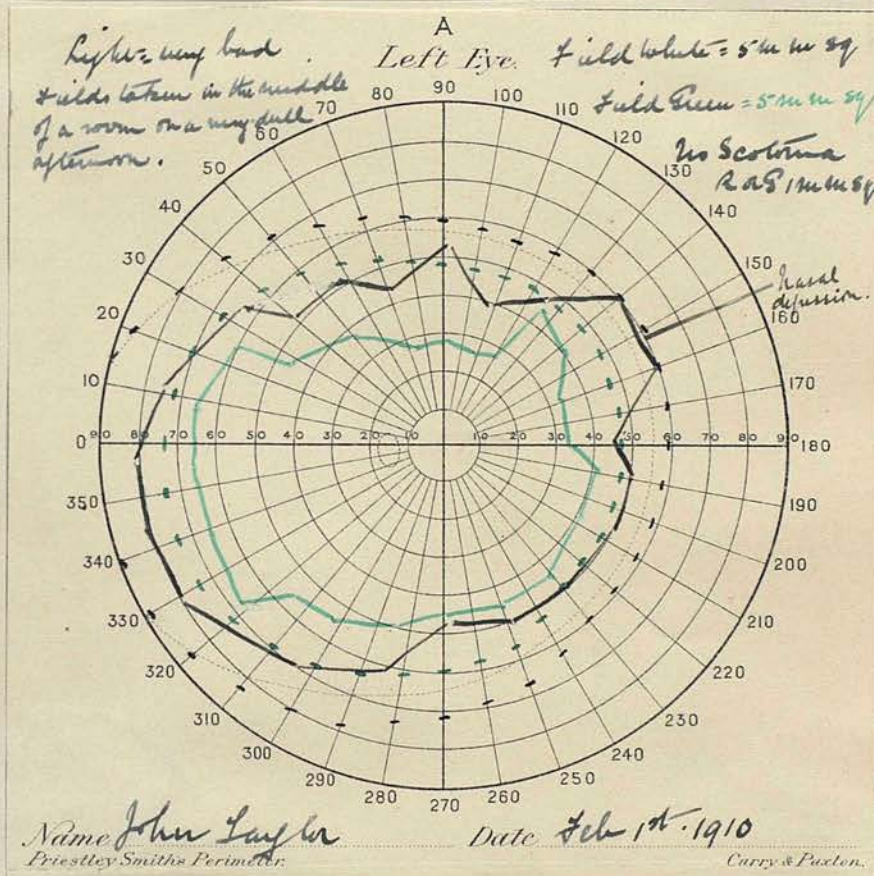 A
Left Eye.
Light = very bad
Fields taken in the middle
of a room on a very dull
afternoon.
Field White = 5 m m sq
Field Green = 5 m m sq
No Scotoma
R or G 1 m m sq
Nasal
depression.
90
100
110
120
130
140
150
160
170
180
190
200
210
220
230
240
250
260
270
280
290
300
310
320
330
340
350
0
10
20
30
40
50
60
70
80
90 80 70 60 50 40 30 20 10 10 20 30 40 50 60 70 80 90
Name John Taylor Date Feb 1st. 1910
Priestley Smith's Perimeter. Curry & Paxton.